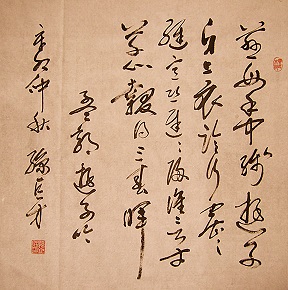 慈母手中綫遊子
身上衣臨行密密
縫意恐遲遲歸誰言寸
草心報得三春暉
孟郊遊子吟
仲秋 孫